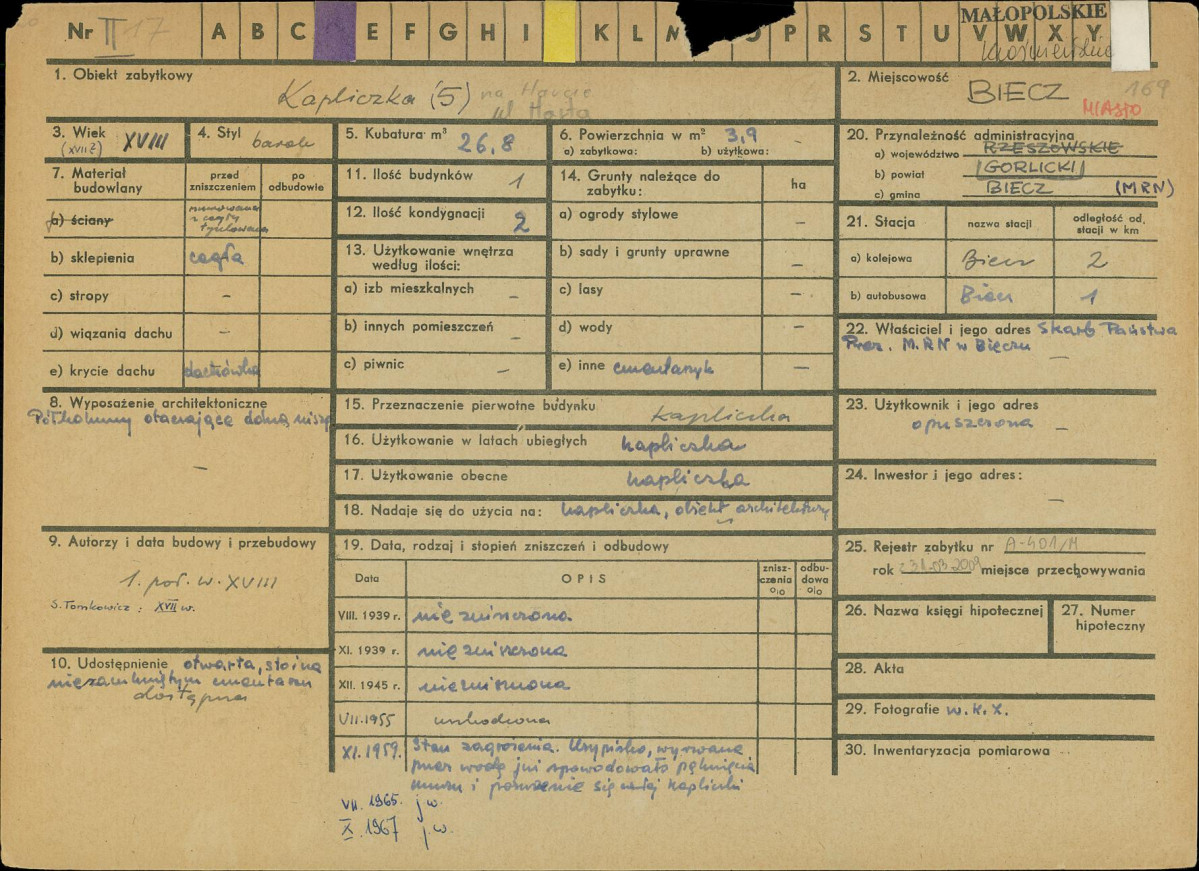 Nr II 17
A B C E F G H I K L M O P R S T U V W X Y
MAŁOPOLSKIE
1. Obiekt zabytkowy
Kapliczka (5) na
ul
2. Miejscowość
BIECZ 169
MIASTO
3. Wiek XVIII
(XVII?)
4. Styl
barok
5. Kubatura m³
26,8
6. Powierzchnia w m² 3,9
a) zabytkowa: b) użytkowa: –
20. Przynależność administracyjna
a) województwo RZESZOWSKIE
b) powiat GORLICKI
c) gmina BIECZ (MRN)
7. Materiał budowlany
przed zniszczeniem
po odbudowie
a) ściany murowana z cegły tynkowana
b) sklepienia cegła
c) stropy –
d) wiązania dachu –
e) krycie dachu dachówka
11. Ilość budynków 1
12. Ilość kondygnacji 2
13. Użytkowanie wnętrza
według ilości:
a) izb mieszkalnych –
b) innych pomieszczeń –
c) piwnic –
14. Grunty należące do
zabytku:
ha
a) ogrody stylowe –
b) sady i grunty uprawne –
c) lasy –
d) wody –
e) inne cmentarzyk –
21. Stacja
nazwa stacji
odległość od. stacji w km
a) kolejowa Biecz 2
b) autobusowa Biecz 1
22. Właściciel i jego adres Skarb Państwa
Prez. M.RN w Bieczu –
8. Wyposażenie architektoniczne
Półkolumny otaczające dolną niszę
–
15. Przeznaczenie pierwotne budynku kapliczka
16. Użytkowanie w latach ubiegłych kapliczka
17. Użytkowanie obecne kapliczka
18. Nadaje się do użycia na: kapliczka, obiekt architektury
23. Użytkownik i jego adres
opuszczona –
24. Inwestor i jego adres:
–
9. Autorzy i data budowy i przebudowy
1. poł. w. XVIII
S. Tomkowicz: XVII w.
19. Data, rodzaj i stopień zniszczeń i odbudowy
Data
OPIS
znisz-
czenia
%
odbu-
dowa
%
VIII. 1939 r. niezniszczona
XI. 1939 r. niezniszczona
XII. 1945 r. niezniszczona
VII.1955 uszkodzona
XI.1959. Stan zagrożenia. Urypisko, wyrwane
przez wodę już spowodowało pęknięcia
muru i poruszenie się całej kapliczki
VII. 1965. j.w.
X. 1967 j.w.
25. Rejestr zabytku nr A-401/M
rok 31.03.2009 miejsce przechowywania
26. Nazwa księgi hipotecznej
27. Numer
hipoteczny
10. Udostępnienie otwarta, stoi na
niezamkniętym cmentarzu
dostępna
28. Akta
29. Fotografie w.k.z.
30. Inwentaryzacja pomiarowa